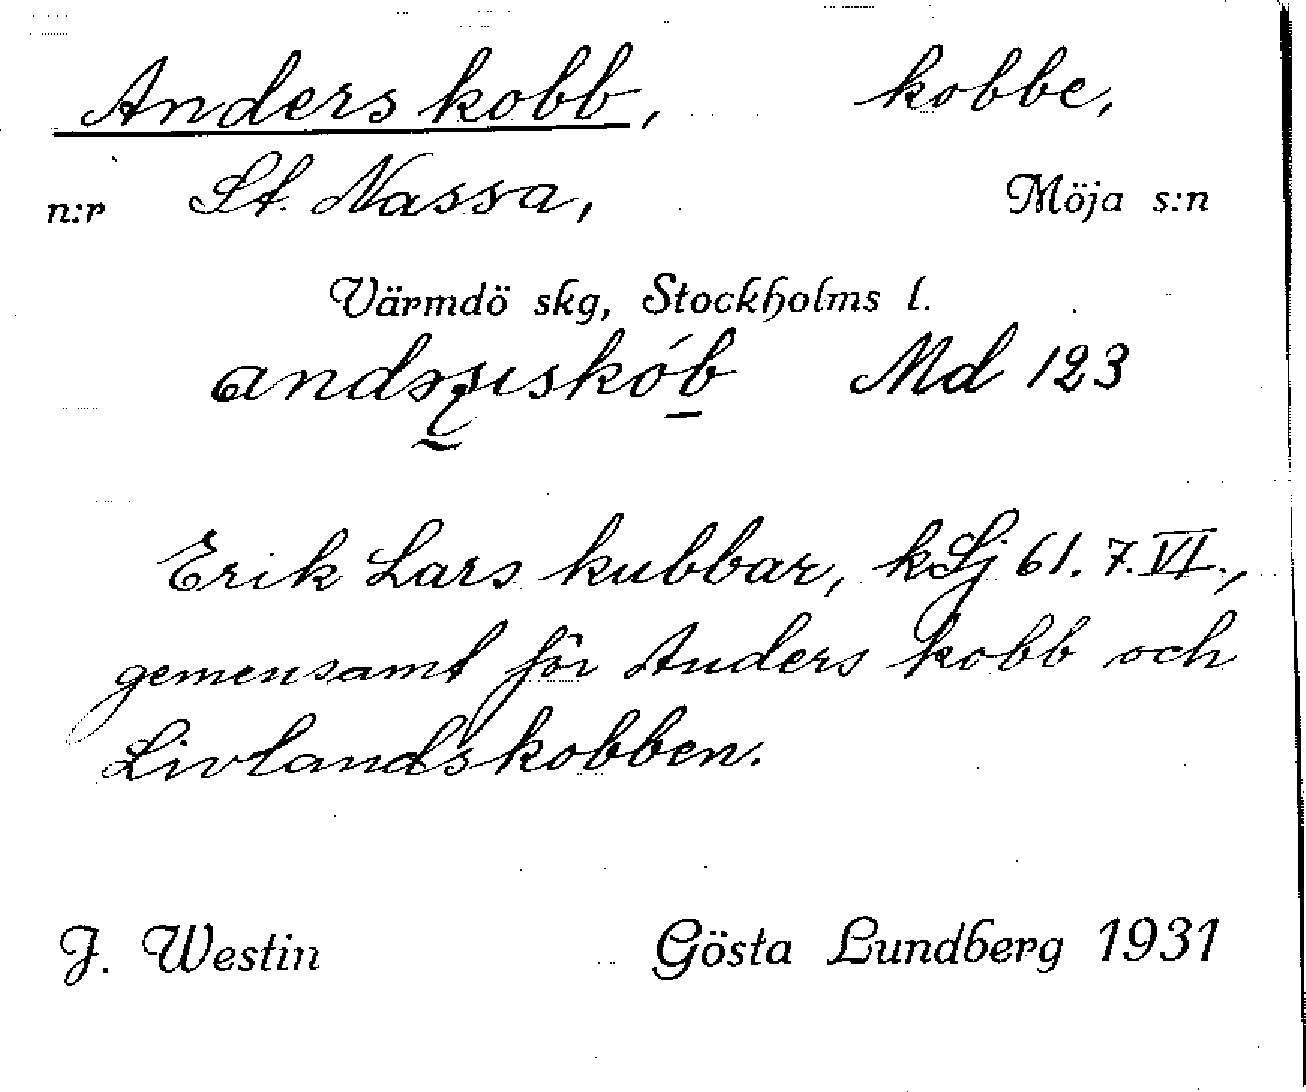 Anders kobb, kobbe,
n:r St. Nassa, Möja s:n
Värmdö skg, Stockholms l.
Md 123
Erik Lars kubbar, kSj 61. 7. VI.,
gemensamt för Anders kobb och
Livlandskobben.
J. Westin Gösta Lundberg 1931